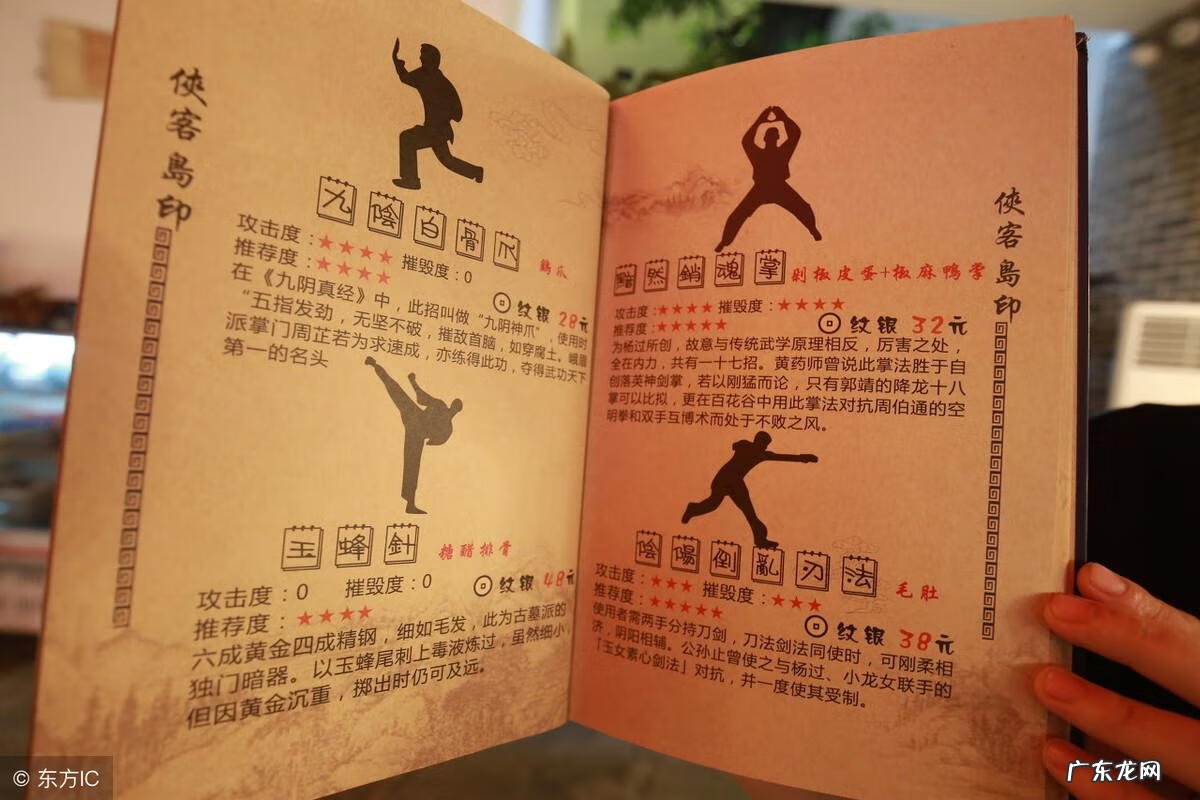 俠客島印
九陰白骨爪 鷄爪
攻击度：★★★★ 摧毁度：0
推荐度：★★★★ 纹银 28元
在《九阴真经》中，此招叫做“九阴神爪”，使用时
“五指发劲，无坚不破，摧敌首脑，如穿腐土。峨眉
派掌门周芷若为求速成，亦练得此功，夺得武功天下
第一的名头
玉蜂針 糖醋排骨
攻击度：0 摧毁度：0 纹银 48元
推荐度：★★★★
六成黄金四成精钢，细如毛发，此为古墓派的
独门暗器。以玉蜂尾刺上毒液炼过，虽然细小，
但因黄金沉重，掷出时仍可及远。
俠客島印
黯然銷魂掌 剁椒皮蛋+椒麻鴨掌
攻击度：★★★★ 摧毁度：★★★★
推荐度：★★★★★ 纹银 32元
为杨过所创，故意与传统武学原理相反，厉害之处，
全在内力，共有一十七招。黄药师曾说此掌法胜于自
创落英神剑掌，若以刚猛而论，只有郭靖的降龙十八
掌可以比拟，更在百花谷中用此掌法对抗周伯通的空
明拳和双手互博术而处于不败之风。
陰陽倒亂刃法 毛肚
攻击度：★★★ 摧毁度：★★★
推荐度：★★★★★ 纹银 38元
使用者需两手分持刀剑，刀法剑法同使时，可刚柔相
济，阴阳相辅。公孙止曾使之与杨过、小龙女联手的
「玉女素心剑法」对抗，并一度使其受制。
© 东方IC
广东龙网